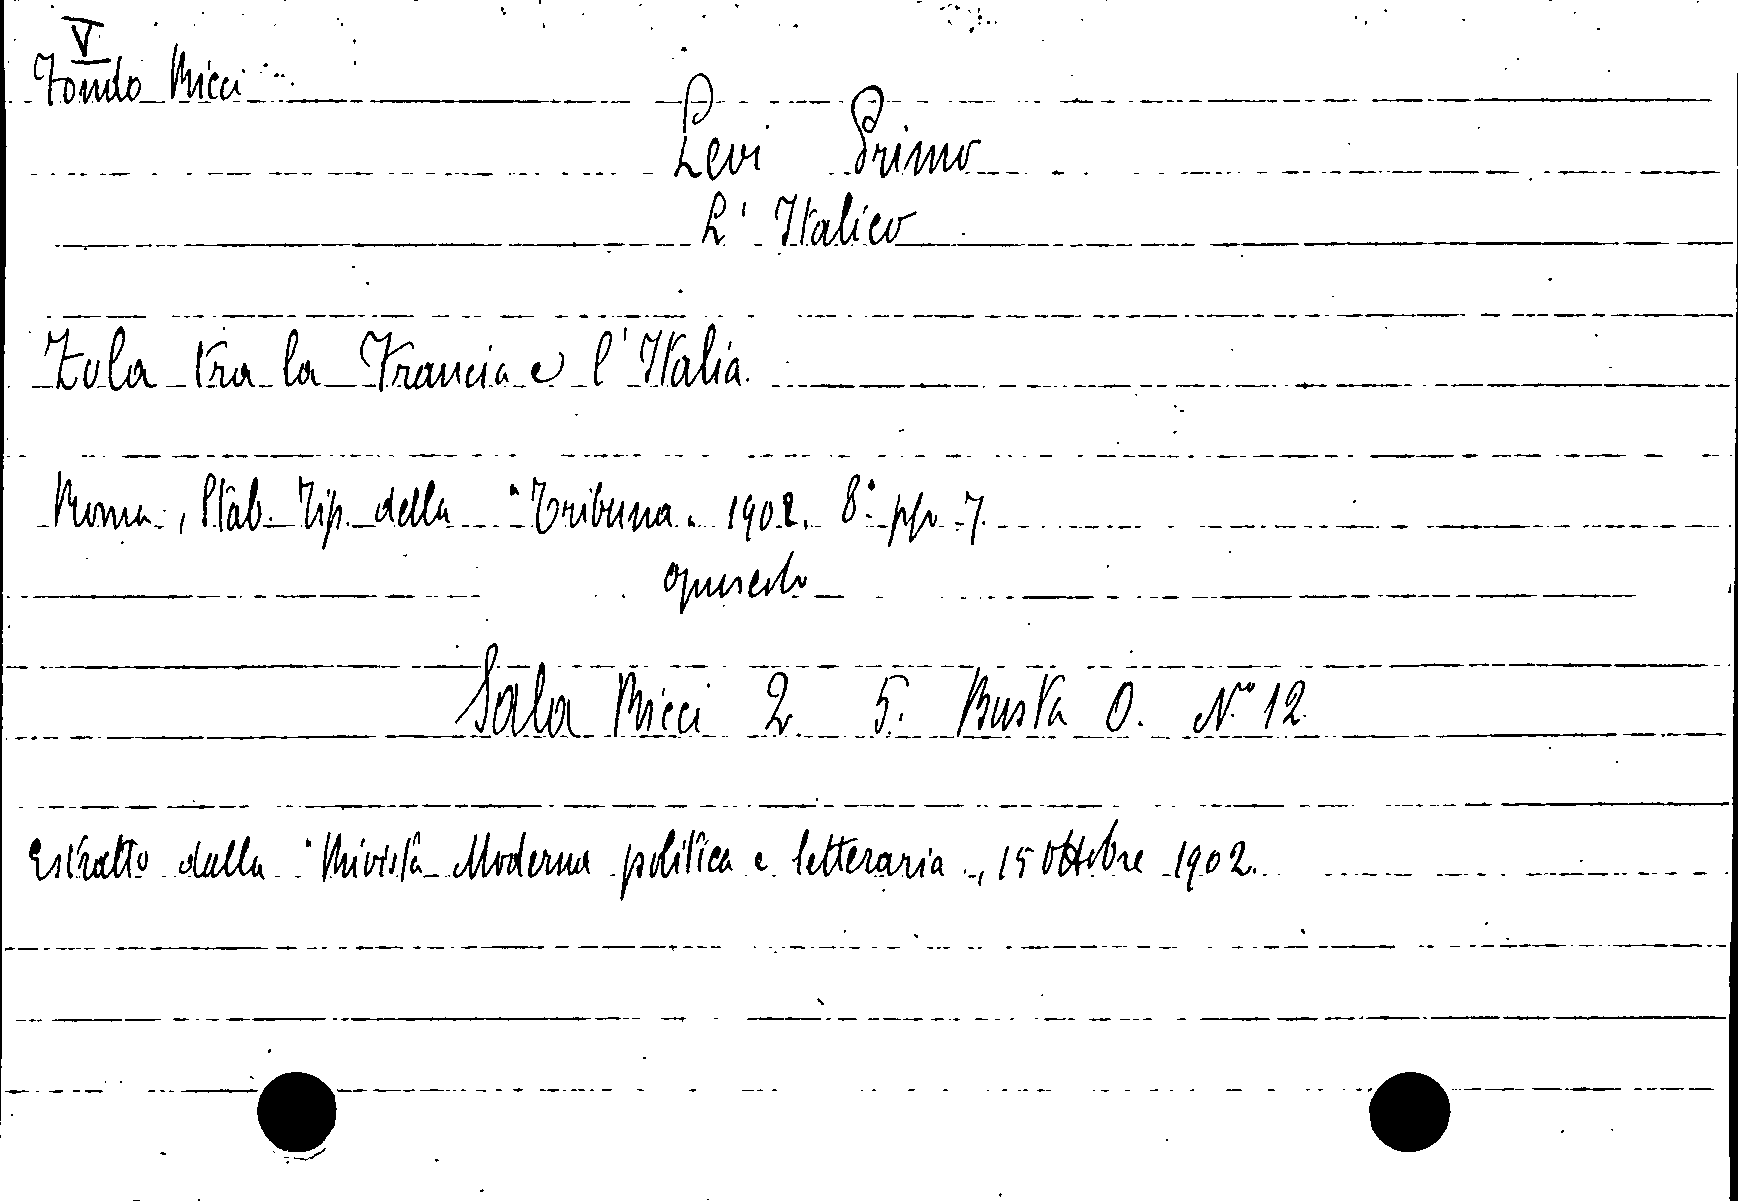 V
Fondo Ricci
Levi Primo
L' Italico
Zola tra la Francia e l'Italia.
Roma, Stab. Tip. della "Tribuna. 1902. 8° pp. 7.
opuscolo
Sala Ricci 2 5. Busta O. N° 12.
Estratto dalla "Rivista Moderna politica e letteraria., 15 Ottobre 1902.